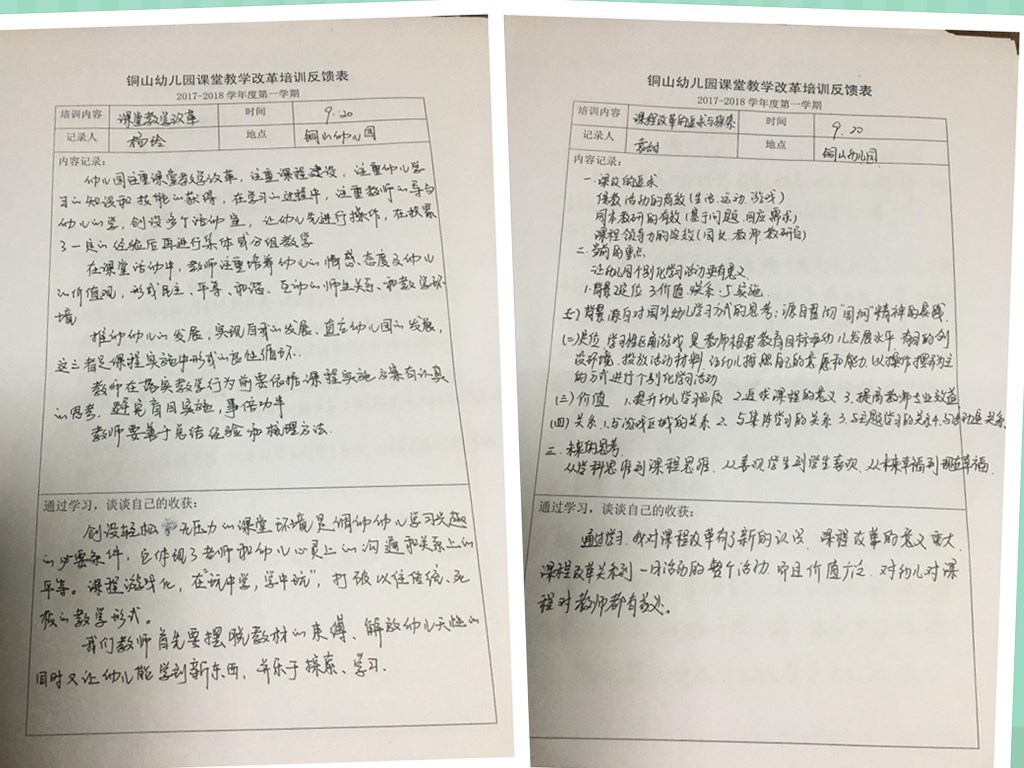 铜山幼儿园课堂教学改革培训反馈表
2017-2018 学年度第一学期
培训内容 课堂教学改革 时间 9.20
记录人 杨玲 地点 铜山幼儿园
内容记录:
幼儿园注重课堂教学改革，注重课程建设，注重幼儿学
习的知识和技能的获得，在学习的过程中，注重教师的导与
幼儿的学，创设多个活动室，让幼儿先进行操作，在积累
了一定的经验后再进行集体或分组教学
在课堂活动中，教师注重培养幼儿的情感、态度及幼儿
的价值观，形成民主、平等、和谐、互动的师生关系和教学环
境
推动幼儿的发展，实现自我的发展、直至幼儿园的发展，
这三者是课程实施中形成的良性循环.
教师在落实教学行为前要依据课程实施方案有认真
的思考，避免盲目实施，事倍功半
教师要善于总结经验和梳理方法.
通过学习，谈谈自己的收获:
创设轻松 无压力的课堂环境是调动幼儿学习兴趣
的必要条件，它体现了老师和幼儿心灵上的沟通和关系上的
平等。课程游戏化，在"玩中学，学中玩"，打破以往传统、死
板的教学形式。
我们教师首先要摆脱教材的束缚、解放幼儿天性的
同时又让幼儿能学到新东西，并乐于探索、学习.
铜山幼儿园课堂教学改革培训反馈表
2017-2018 学年度第一学期
培训内容 课程改革的追求与探索 时间 9.20
记录人 地点 铜山幼儿园
内容记录:
一.课改的追求
保教活动的高效(生活.运动.游戏)
园本教研的有效(基于问题.回应需求)
课程领导力的实效(园长.教师.教研组)
二.当前的重点
让幼儿园个别化学习活动更有意义
1.背景 定位 3.价值.关系.5.实施.
(一)背景 源自对国外幼儿学习方式的思考；源自 精神的实践.
(二)定位,学习性区角游戏是教师根据教育目标与幼儿发展水平有目的创
设环境.投放活动材料.让幼儿按照自己的意愿和能力.以操作摆弄为主
的方式进行个别化学习活动
(三)价值 1.提升幼儿学习品质 2.追求课程的意义 3.提高教师专业效益
(四)关系.1.与游戏区域的关系 2.与集体学习的关系 3.与主题学习的关系4.与 关系
三.未来的思考.
从学科思维到课程思维.从喜欢学生到学生喜欢.从未来幸福到现在幸福.
通过学习，谈谈自己的收获:
通过学习.我对课程改革有了新的认识.课程改革的意义重大.
课程改革关系到一日活动的整个活动.而且价值广泛.对幼儿对课
程对教师都有益处。